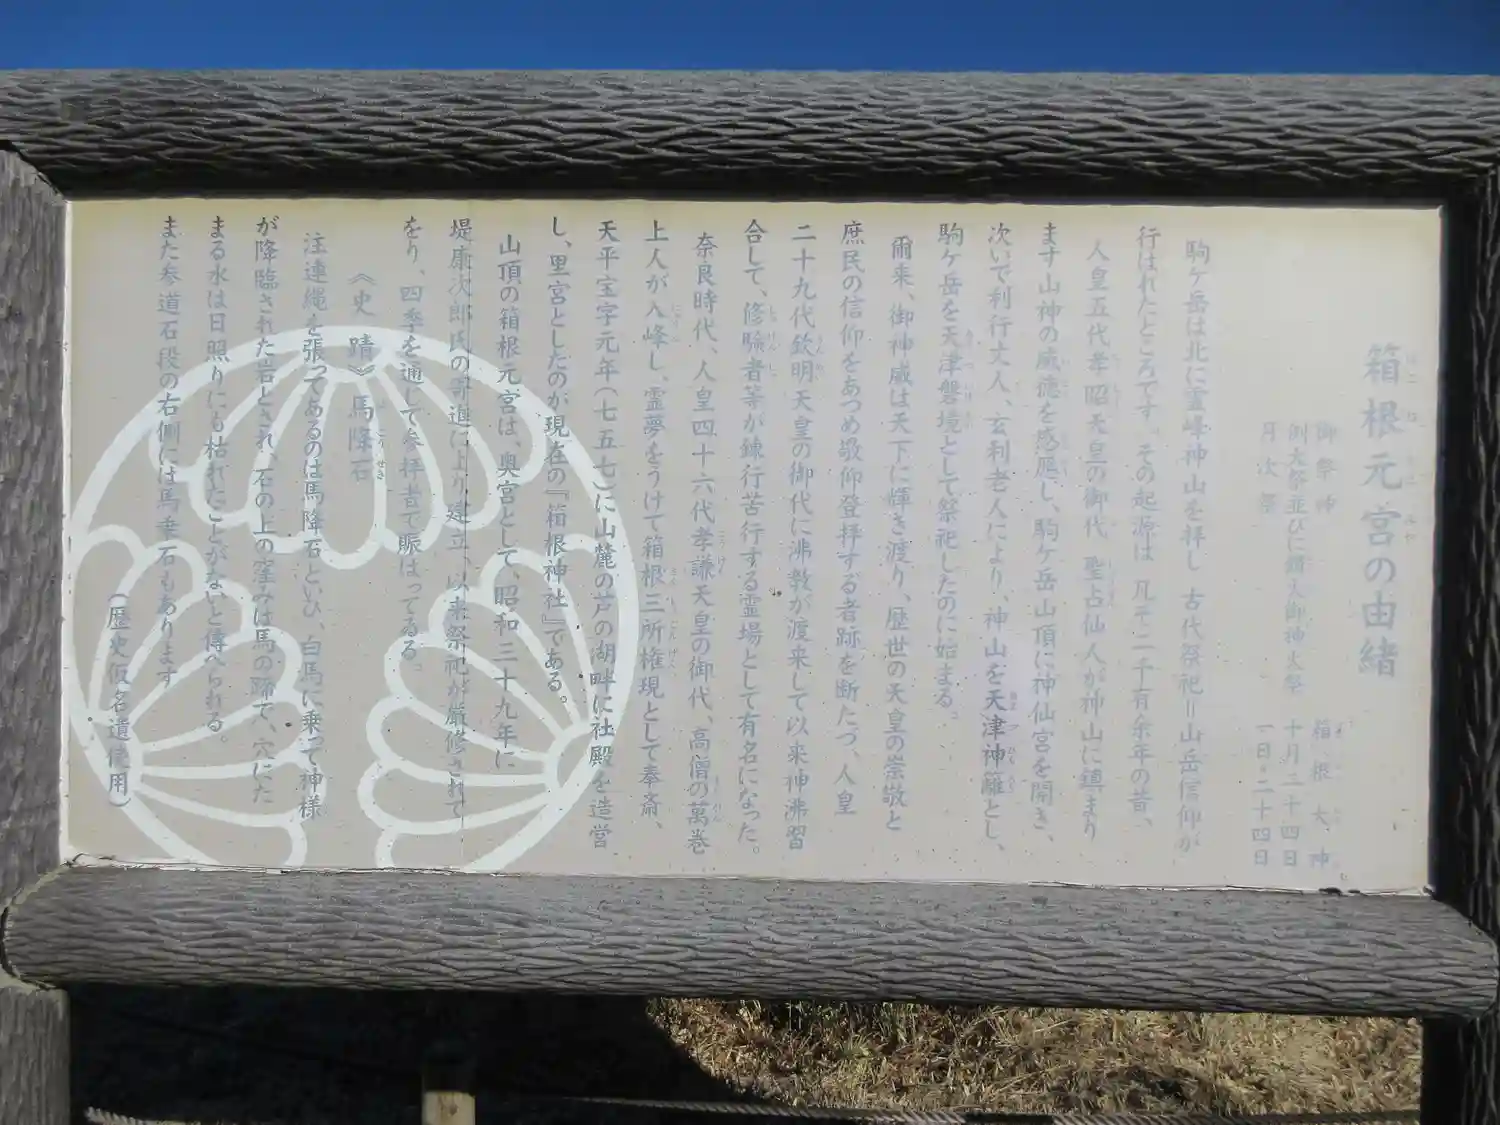 箱根元宮の由緒
御祭神 箱根大神
例大祭並びに鎮火御神火祭 十月二十四日
月次祭 一日・二十四日
駒ケ岳は北に霊峰神山を拝し 古代祭祀＝山岳信仰が
行はれたところです。その起源は 凡そ二千有余年の昔、
人皇五代孝昭天皇の御代 聖占仙人が神山に鎮まり
ます山神の威徳を感應し、駒ケ岳山頂に神仙宮を開き、
次いで利行丈人、玄利老人により、神山を天津神籬とし、
駒ケ岳を天津磐境として祭祀したのに始まる。
爾来、御神威は天下に輝き渡り、歴世の天皇の崇敬と
庶民の信仰をあつめ敬仰登拝する者跡を断たづ、人皇
二十九代欽明天皇の御代に沸教が渡来して以来神沸習
合して、修験者等が錬行苦行する霊場として有名になった。
奈良時代、人皇四十六代孝謙天皇の御代、高僧の萬巻
上人が入峰し、霊夢をうけて箱根三所権現として奉斎、
天平宝字元年（七五七）に山麓の芦の湖畔に社殿を造営
し、里宮としたのが現在の『箱根神社』である。
山頂の箱根元宮は、奥宮として、昭和三十九年に
堤康次郎氏の寄進に上り建立、以来祭祀が厳修されて
をり、四季を通して参拝者で賑はってゐる。
《史蹟》 馬降石
注連縄を張ってあるのは馬降石といひ、白馬に乗って神様
が降臨された岩とされ、石の上の窪みは馬の蹄で、穴にた
まる水は日照りにも枯れたことがないと傳へられる。
また参道石段の右側には馬乗石もあります
（歴史仮名遺使用）